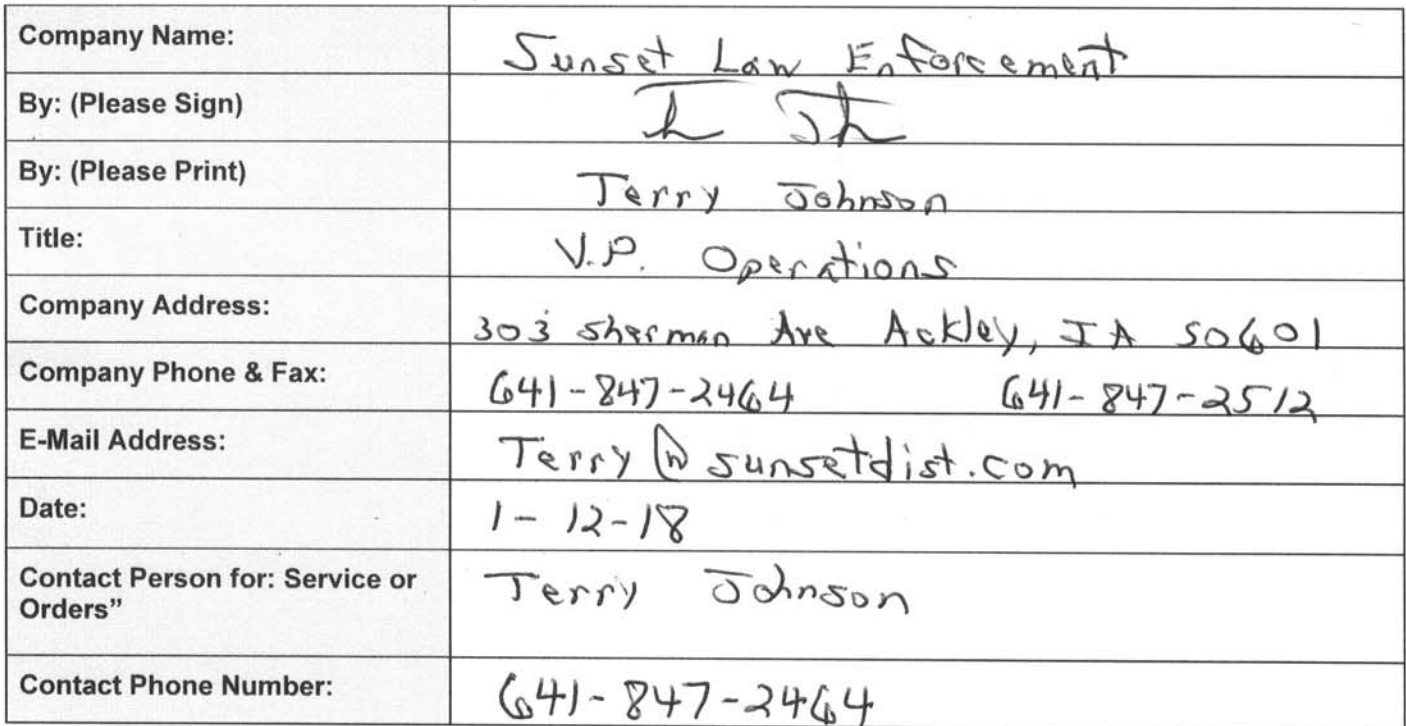 Company Name: Sunset Law Enforcement
By: (Please Sign)
By: (Please Print) Terry Johnson
Title: V.P. Operations
Company Address: 303 Sherman Ave Ackley, IA 50601
Company Phone & Fax: 641-847-2464 641-847-2512
E-Mail Address: Terry@sunsetdist.com
Date: 1-12-18
Contact Person for: Service or
Orders” Terry Johnson
Contact Phone Number: 641-847-2464